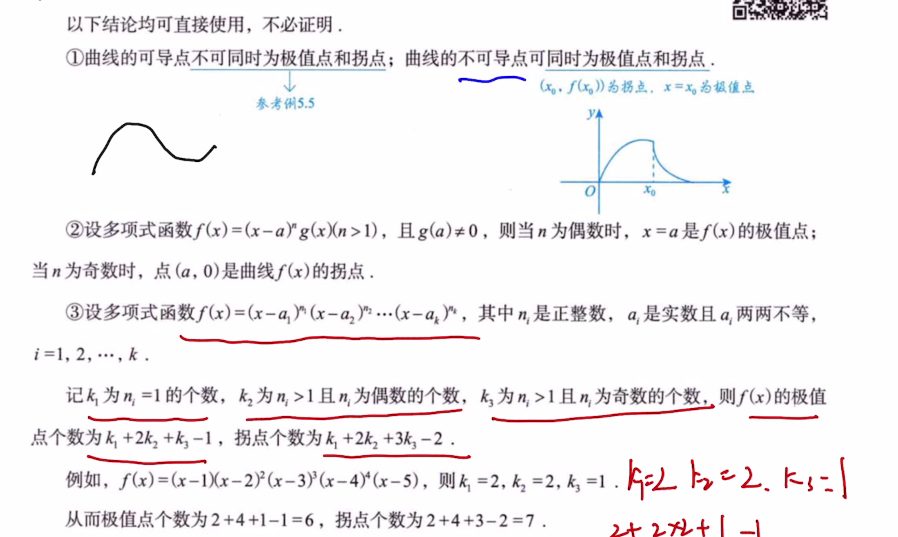 以下结论均可直接使用，不必证明．
①曲线的可导点不可同时为极值点和拐点；曲线的不可导点可同时为极值点和拐点．
参考例5.5
(x₀, f(x₀))为拐点，x=x₀为极值点
y
O
x₀
x
②设多项式函数f(x)=(x-a)ⁿg(x)(n>1)，且g(a)≠0，则当n为偶数时，x=a是f(x)的极值点；
当n为奇数时，点(a, 0)是曲线f(x)的拐点．
③设多项式函数f(x)=(x-a₁)^{n₁}(x-a₂)^{n₂}⋯(x-aₖ)^{nₖ}，其中nᵢ是正整数，aᵢ是实数且aᵢ两两不等，
i=1, 2, ⋯, k．
记k₁为nᵢ=1的个数，k₂为nᵢ>1且nᵢ为偶数的个数，k₃为nᵢ>1且nᵢ为奇数的个数，则f(x)的极值
点个数为k₁+2k₂+k₃-1，拐点个数为k₁+2k₂+3k₃-2．
例如，f(x)=(x-1)(x-2)²(x-3)³(x-4)⁴(x-5)，则k₁=2, k₂=2, k₃=1．
k₁=2 k₂=2. k₃=1
从而极值点个数为2+4+1-1=6，拐点个数为2+4+3-2=7．
2+2×2+1-1